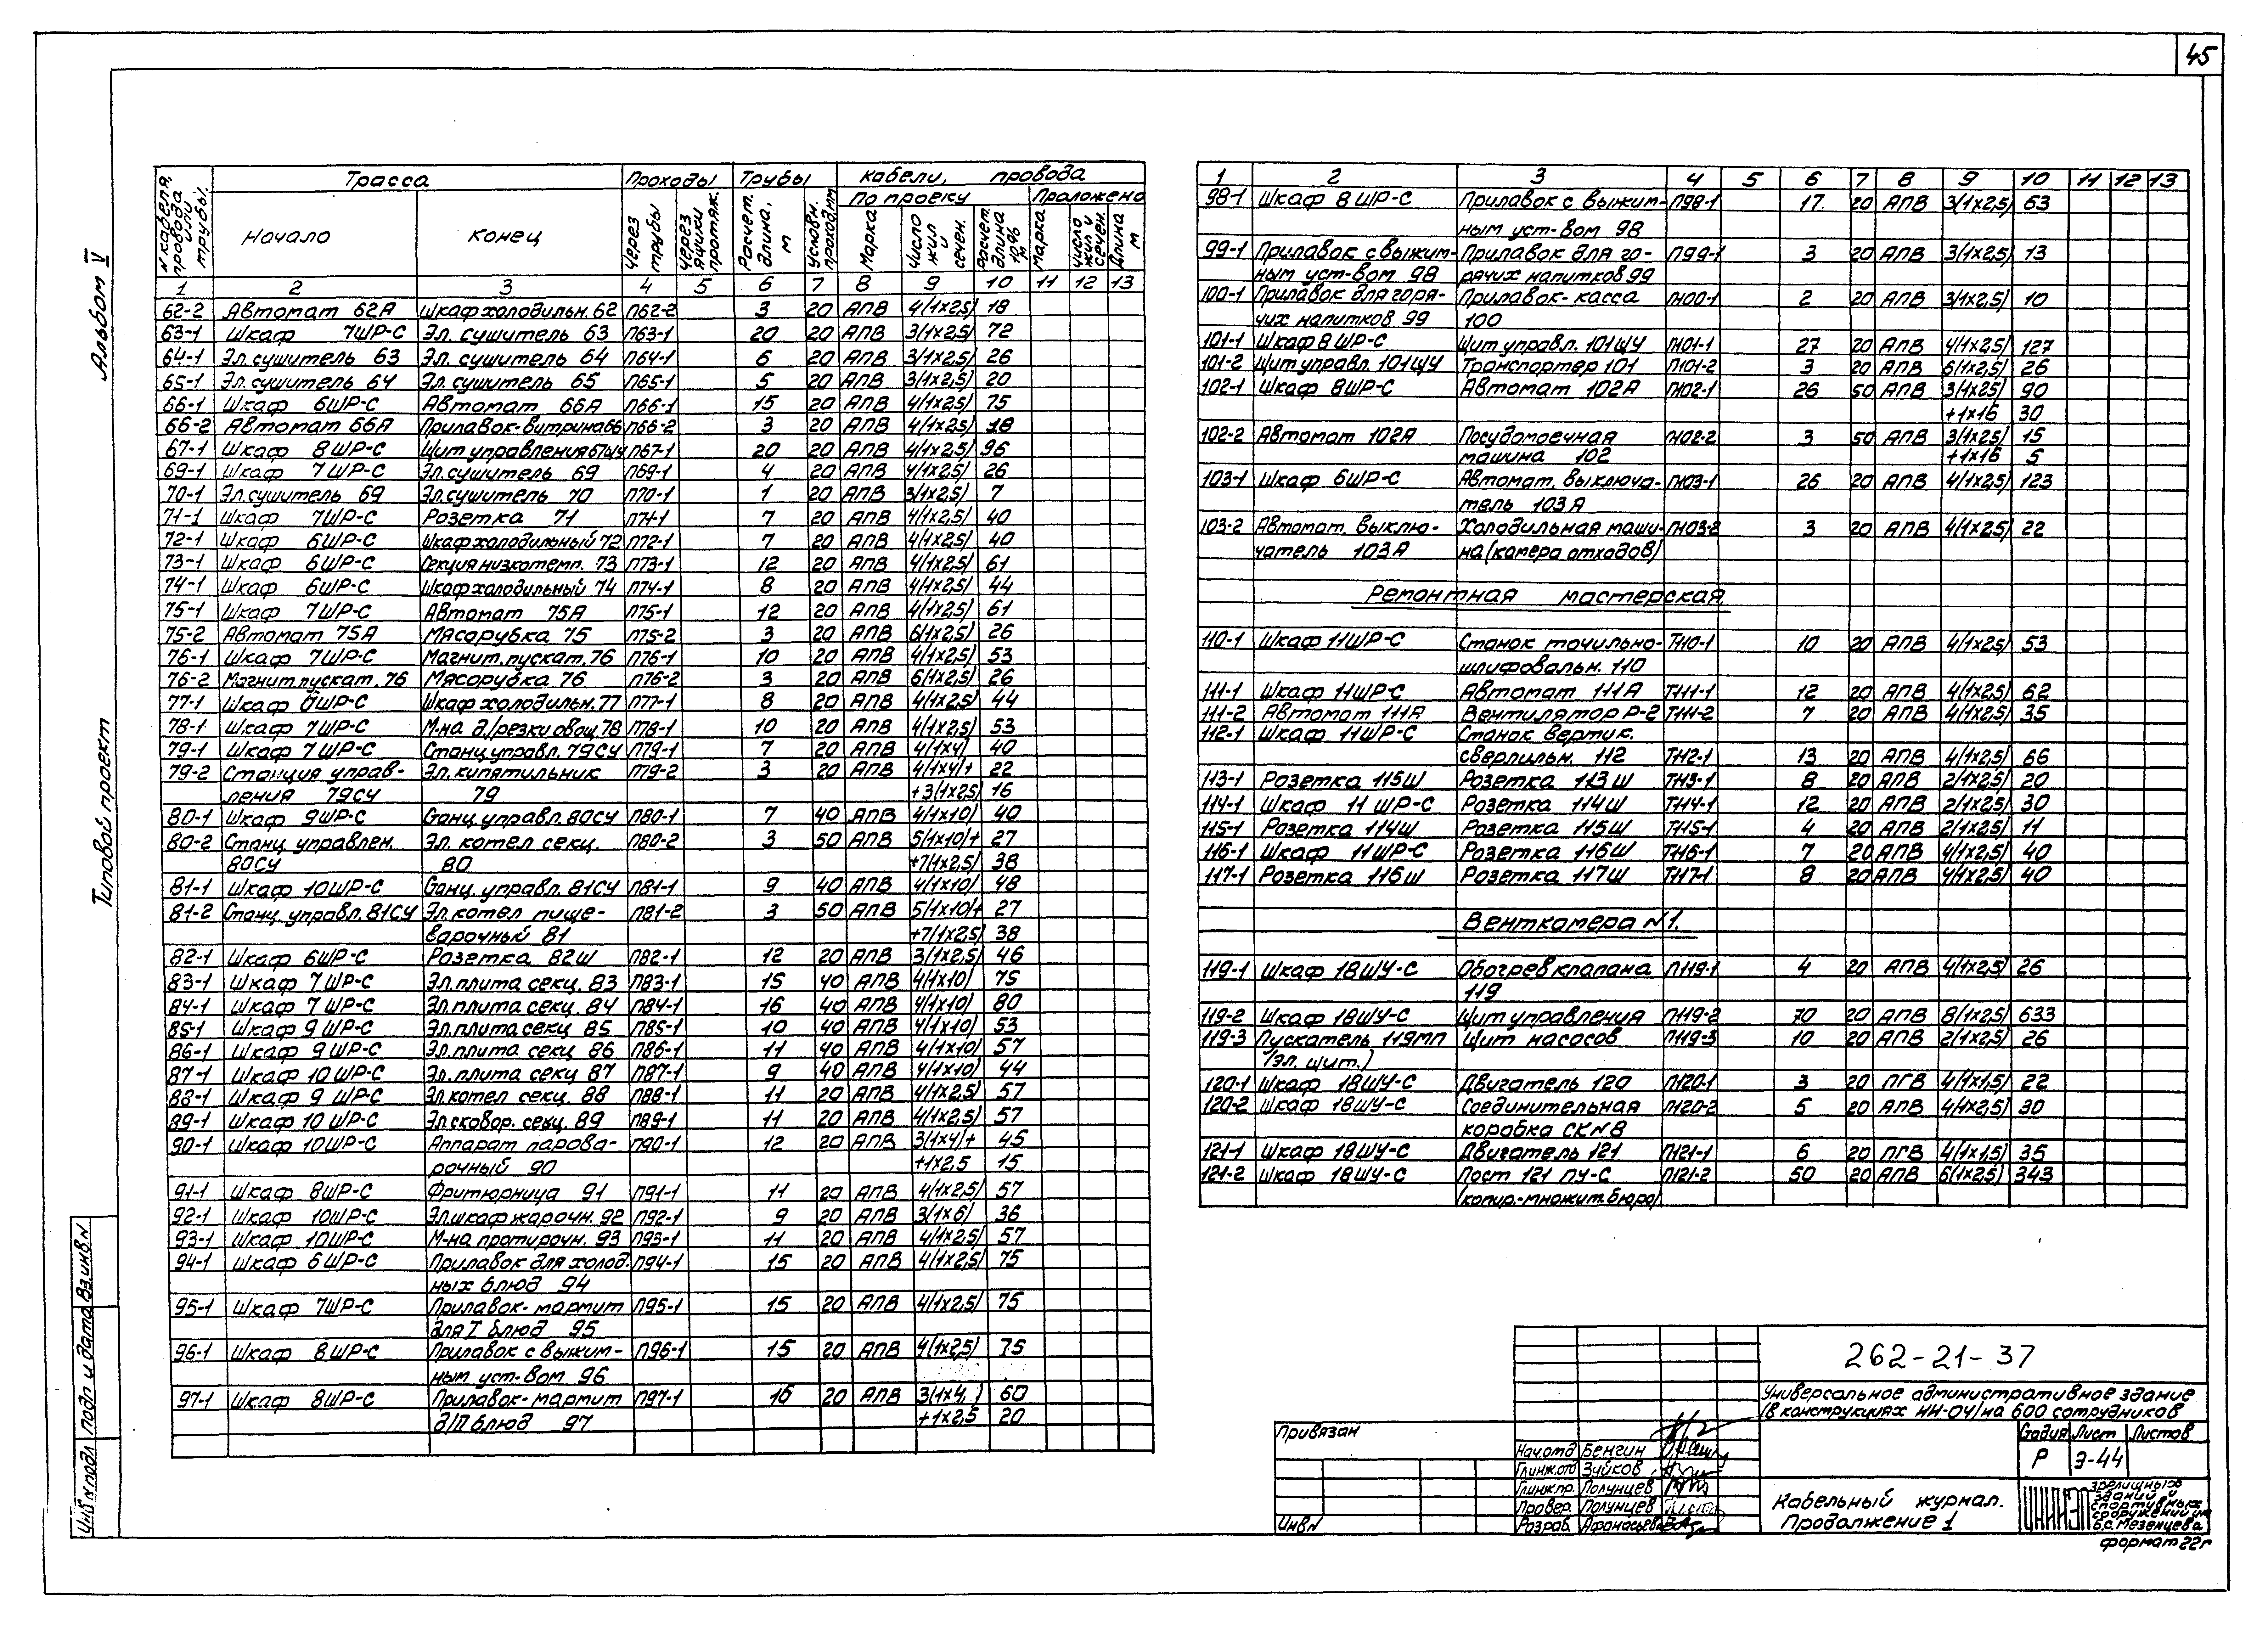 45
Альбом V
Типовой проект
N кабеля, провода или трубы.
Трасса
Проходы
Трубы
Кабели, провода
По проеку
Проложено
Начало
Конец
Через трубы
Через ящики протяж.
Расчет. длина, м
Условн. проход мм
Марка
Число жил и сечен.
Расчет. длина
Марка
Число жил и сечен.
Длина м
1 2 3 4 5 6 7 8 9 10 11 12 13
62-2 Автомат 62А Шкаф холодильн. 62 П62-2 3 20 АПВ 4(1x2,5) 18
63-1 Шкаф 7ШР-С Эл. сушитель 63 П63-1 20 20 АПВ 3(1x2,5) 72
64-1 Эл. сушитель 63 Эл. сушитель 64 П64-1 6 20 АПВ 3(1x2,5) 26
65-1 Эл. сушитель 64 Эл. сушитель 65 П65-1 5 20 АПВ 3(1x2,5) 20
66-1 Шкаф 6ШР-С Автомат 66А П66-1 15 20 АПВ 4(1x2,5) 75
66-2 Автомат 66А Прилавок-витрина 66 П66-2 3 20 АПВ 4(1x2,5) 18
67-1 Шкаф 8ШР-С Щит управления 67ЩУ П67-1 20 20 АПВ 4(1x2,5) 96
69-1 Шкаф 7ШР-С Эл. сушитель 69 П69-1 4 20 АПВ 4(1x2,5) 26
70-1 Эл. сушитель 69 Эл. сушитель 70 П70-1 1 20 АПВ 3(1x2,5) 7
71-1 Шкаф 7ШР-С Розетка 71 П71-1 7 20 АПВ 4(1x2,5) 40
72-1 Шкаф 6ШР-С Шкаф холодильный 72 П72-1 7 20 АПВ 4(1x2,5) 40
73-1 Шкаф 6ШР-С Секция низкотемп. 73 П73-1 12 20 АПВ 4(1x2,5) 61
74-1 Шкаф 6ШР-С Шкаф холодильный 74 П74-1 8 20 АПВ 4(1x2,5) 44
75-1 Шкаф 7ШР-С Автомат 75А П75-1 12 20 АПВ 4(1x2,5) 61
75-2 Автомат 75А Мясорубка 75 П75-2 3 20 АПВ 6(1x2,5) 26
76-1 Шкаф 7ШР-С Магнит. пускат. 76 П76-1 10 20 АПВ 4(1x2,5) 53
76-2 Магнит. пускат. 76 Мясорубка 76 П76-2 3 20 АПВ 6(1x2,5) 26
77-1 Шкаф 6ШР-С Шкаф холодильн. 77 П77-1 8 20 АПВ 4(1x2,5) 44
78-1 Шкаф 7ШР-С М-на д/резки овощ. 78 П78-1 10 20 АПВ 4(1x2,5) 53
79-1 Шкаф 7ШР-С Станц. управл. 79СУ П79-1 7 20 АПВ 4(1x4) 40
79-2 Станция управ- Эл. кипятильник П79-2 3 20 АПВ 4(1x4)+ 22
ления 79СУ 79 +3(1x2,5) 16
80-1 Шкаф 9ШР-С Станц. управл. 80СУ П80-1 7 40 АПВ 4(1x10) 40
80-2 Станц. управлен. Эл. котел секц. П80-2 3 50 АПВ 5(1x10)+ 27
80СУ 80 +7(1x2,5) 38
81-1 Шкаф 10ШР-С Станц. управл. 81СУ П81-1 9 40 АПВ 4(1x10) 48
81-2 Станц. управл. 81СУ Эл. котел пище- П81-2 3 50 АПВ 5(1x10)+ 27
варочный 81 +7(1x2,5) 38
82-1 Шкаф 6ШР-С Розетка 82Ш П82-1 12 20 АПВ 3(1x2,5) 46
83-1 Шкаф 7ШР-С Эл. плита секц. 83 П83-1 15 40 АПВ 4(1x10) 75
84-1 Шкаф 7ШР-С Эл. плита секц. 84 П84-1 16 40 АПВ 4(1x10) 80
85-1 Шкаф 9ШР-С Эл. плита секц 85 П85-1 10 40 АПВ 4(1x10) 53
86-1 Шкаф 9ШР-С Эл. плита секц 86 П86-1 11 40 АПВ 4(1x10) 57
87-1 Шкаф 10ШР-С Эл. плита секц 87 П87-1 9 40 АПВ 4(1x10) 44
88-1 Шкаф 9ШР-С Эл. котел секц. 88 П88-1 11 20 АПВ 4(1x2,5) 57
89-1 Шкаф 10ШР-С Эл. сковор. секц. 89 П89-1 11 20 АПВ 4(1x2,5) 57
90-1 Шкаф 10ШР-С Аппарат парова- П90-1 12 20 АПВ 3(1x4)+ 45
рочный 90 +1x2,5 15
91-1 Шкаф 8ШР-С Фритюрница 91 П91-1 11 20 АПВ 4(1x2,5) 57
92-1 Шкаф 10ШР-С Эл. шкаф жарочн. 92 П92-1 9 20 АПВ 3(1x6) 36
93-1 Шкаф 10ШР-С М-на протирочн. 93 П93-1 11 20 АПВ 4(1x2,5) 57
94-1 Шкаф 6ШР-С Прилавок для холод- П94-1 15 20 АПВ 4(1x2,5) 75
ных блюд 94
95-1 Шкаф 7ШР-С Прилавок-мармит П95-1 15 20 АПВ 4(1x2,5) 75
для I блюд 95
96-1 Шкаф 8ШР-С Прилавок с выжим- П96-1 15 20 АПВ 4(1x2,5) 75
ным уст-вом 96
97-1 Шкаф 8ШР-С Прилавок-мармит П97-1 16 20 АПВ 3(1x4) 60
д/II блюд 97 +1x2,5 20
1 2 3 4 5 6 7 8 9 10 11 12 13
98-1 Шкаф 8ШР-С Прилавок с выжим- П98-1 17 20 АПВ 3(1x2,5) 63
ным уст-вом 98
99-1 Прилавок с выжим- Прилавок для го- П99-1 3 20 АПВ 3(1x2,5) 13
ным уст-вом 98 рячих напитков 99
100-1 Прилавок для горя- Прилавок-касса П100-1 2 20 АПВ 3(1x2,5) 10
чих напитков 99 100
101-1 Шкаф 8ШР-С Щит управл. 101ЩУ П101-1 27 20 АПВ 4(1x2,5) 127
101-2 Щит управл. 101ЩУ Транспортер 101 П101-2 3 20 АПВ 6(1x2,5) 26
102-1 Шкаф 8ШР-С Автомат 102А П102-1 26 50 АПВ 3(1x25) 90
+1x16 30
102-2 Автомат 102А Посудомоечная П102-2 3 50 АПВ 3(1x25) 15
машина 102 +1x16 5
103-1 Шкаф 6ШР-С Автомат. выключа- П103-1 26 20 АПВ 4(1x2,5) 123
тель 103А
103-2 Автомат. выклю- Холодильная маши- П103-2 3 20 АПВ 4(1x2,5) 22
чатель 103А на (камера отходов)
Ремонтная мастерская.
110-1 Шкаф 11ШР-С Станок точильно- Т110-1 10 20 АПВ 4(1x2,5) 53
шлифовальн. 110
111-1 Шкаф 11ШР-С Автомат 111А Т111-1 12 20 АПВ 4(1x2,5) 62
111-2 Автомат 111А Вентилятор Р-2 Т111-2 7 20 АПВ 4(1x2,5) 35
112-1 Шкаф 11ШР-С Станок вертик.
сверлильн. 112 Т112-1 13 20 АПВ 4(1x2,5) 66
113-1 Розетка 115Ш Розетка 113Ш Т113-1 8 20 АПВ 2(1x2,5) 20
114-1 Шкаф 11ШР-С Розетка 114Ш Т114-1 12 20 АПВ 2(1x2,5) 30
115-1 Розетка 114Ш Розетка 115Ш Т115-1 4 20 АПВ 2(1x2,5) 11
116-1 Шкаф 11ШР-С Розетка 116Ш Т116-1 7 20 АПВ 4(1x2,5) 40
117-1 Розетка 116Ш Розетка 117Ш Т117-1 8 20 АПВ 4(1x2,5) 40
Венткамера N1.
119-1 Шкаф 18ШУ-С Обогрев клапана П119-1 4 20 АПВ 4(1x2,5) 26
119
119-2 Шкаф 18ШУ-С Щит управления П119-2 70 20 АПВ 8(1x2,5) 633
119-3 Пускатель 119МП Щит насосов П119-3 10 20 АПВ 2(1x2,5) 26
(эл. щит.)
120-1 Шкаф 18ШУ-С Двигатель 120 П120-1 3 20 ПГВ 4(1x1,5) 22
120-2 Шкаф 18ШУ-С Соединительная П120-2 5 20 АПВ 4(1x2,5) 30
коробка СКN8
121-1 Шкаф 18ШУ-С Двигатель 121 П121-1 6 20 ПГВ 4(1x1,5) 35
121-2 Шкаф 18ШУ-С Пост 121 ПУ-С П121-2 50 20 АПВ 6(1x2,5) 343
(копир.-множит. бюро)
Инв N подл Подп и дата Вз. инв. N
Привязан
Инв N
Нач. отд Бенгин
Гл. инж. отд Зуйков
Гл. инж. пр. Полунцев
Провер. Полунцев
Разраб. Афанасьева
262-21-37
Универсальное административное здание
(в конструкциях ИИ-04) на 600 сотрудников
Стадия Лист Листов
Р Э-44
Кабельный журнал.
Продолжение 1
ЦНИИЭП
зрелищных
зданий и
спортивных
сооружений им
Б.С. Мезенцева
формат 22г